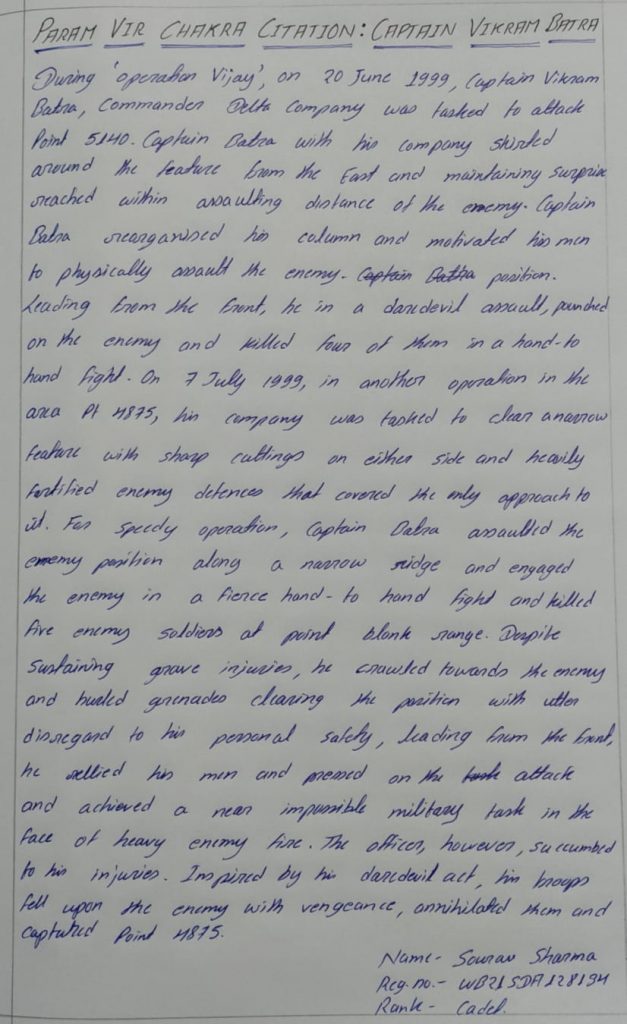 PARAM VIR CHAKRA CITATION: CAPTAIN VIKRAM BATRA
During 'operation Vijay', on 20 June 1999, Captain Vikram
Batra, Commander Delta Company was tasked to attack
Point 5140. Captain Batra with his company skirted
around the feature from the East and maintaining surprise
reached within assaulting distance of the enemy. Captain
Batra reorganised his column and motivated his men
to physically assault the enemy. Captain Battra position.
Leading from the front, he in a daredevil assault, pounched
on the enemy and killed four of them in a hand-to
hand fight. On 7 July 1999, in another operation in the
area Pt 4875, his company was tasked to clear a narrow
feature with sharp cuttings on either side and heavily
fortified enemy defences that covered the only approach to
it. For speedy operation, Captain Batra assaulted the
enemy position along a narrow ridge and engaged
the enemy in a fierce hand-to hand fight and killed
five enemy soldiers at point blank range. Despite
sustaining grave injuries, he crawled towards the enemy
and hurled grenades clearing the position with utter
disregard to his personal safety, leading from the front,
he rellied his men and pressed on the task attack
and achieved a near impossible military task in the
face of heavy enemy fire. The officer, however, succumbed
to his injuries. Inspired by his daredevil act, his troops
fell upon the enemy with vengeance, annihilated them and
captured Point 4875.
Name- Sourav Sharma
Reg.no.- WB21SDA128194
Rank- Cadet.